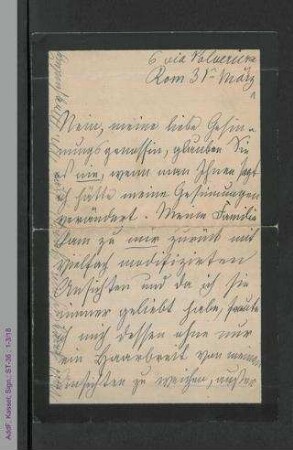 6 via Polveriera
Rom 31. März
Nein, meine liebe Gesin-
nungsgenossin, glauben Sie
es nie, wenn man Ihnen sagt
ich hätte meine Gesinnungen
verändert. Meine Familie
kam zu mir zurück mit
vielfach modifizirten
Ansichten und da ich sie
immer geliebt habe, freute
ich mich dessen ohne nur
ein Haarbreit von meinen
Ansichten zu weichen, außer
AddF, Kassel, Sign.: ST-36 ; 1-3/18